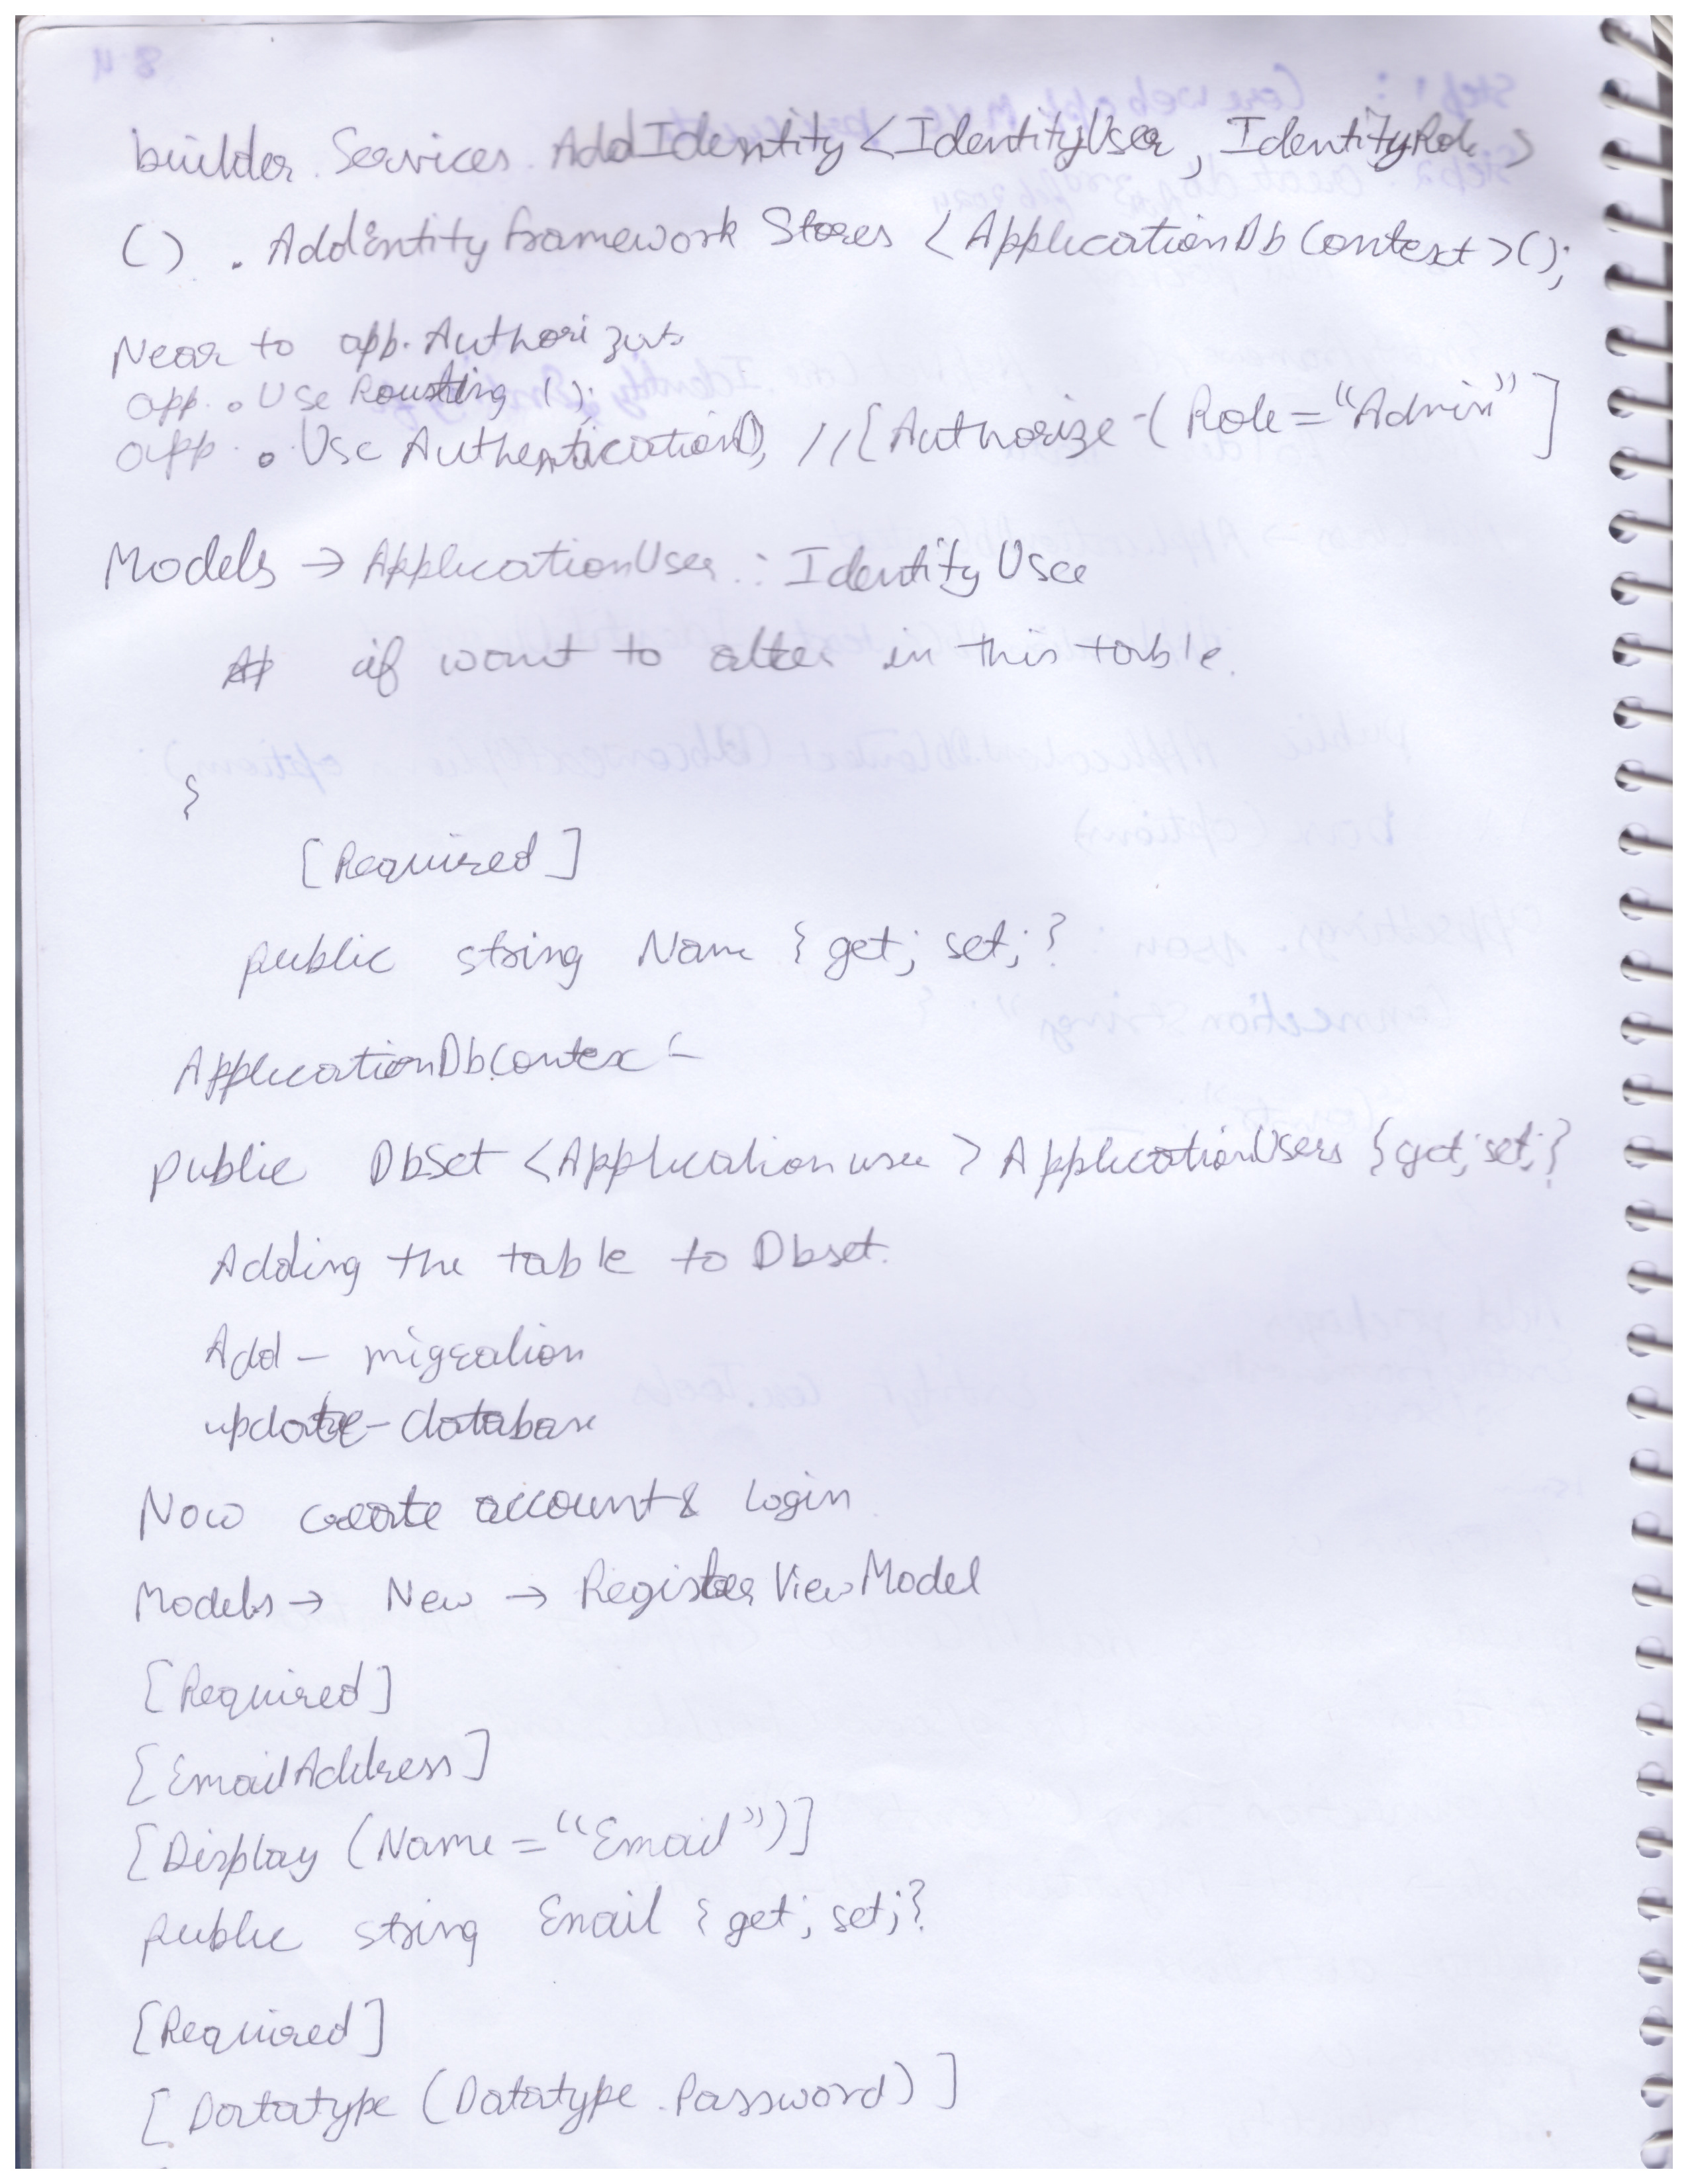 builder. Services. AddIdentity <IdentityUser, IdentityRole>
() . AddEntity framework Stores <ApplicationDb Context>();
Near to app. Authorizat
app. . Use Routing ();
app. . Use Authentication(), //[Authorize-(Role="Admin"]
Models → ApplicationUser : Identity User
# if want to alter in this table.
{
[Required]
public string Name {get; set;}
ApplicationDbContex -
public DbSet <Application user> ApplicationUsers {get; set;}
Adding the table to Dbset.
Add - migration
update - database
Now create account & login
Models → New → Register View Model
[Required]
[EmailAddress]
[Display (Name = "Email")]
public string Email {get; set;}
[Required]
[Datatype (Datatype. Password)]